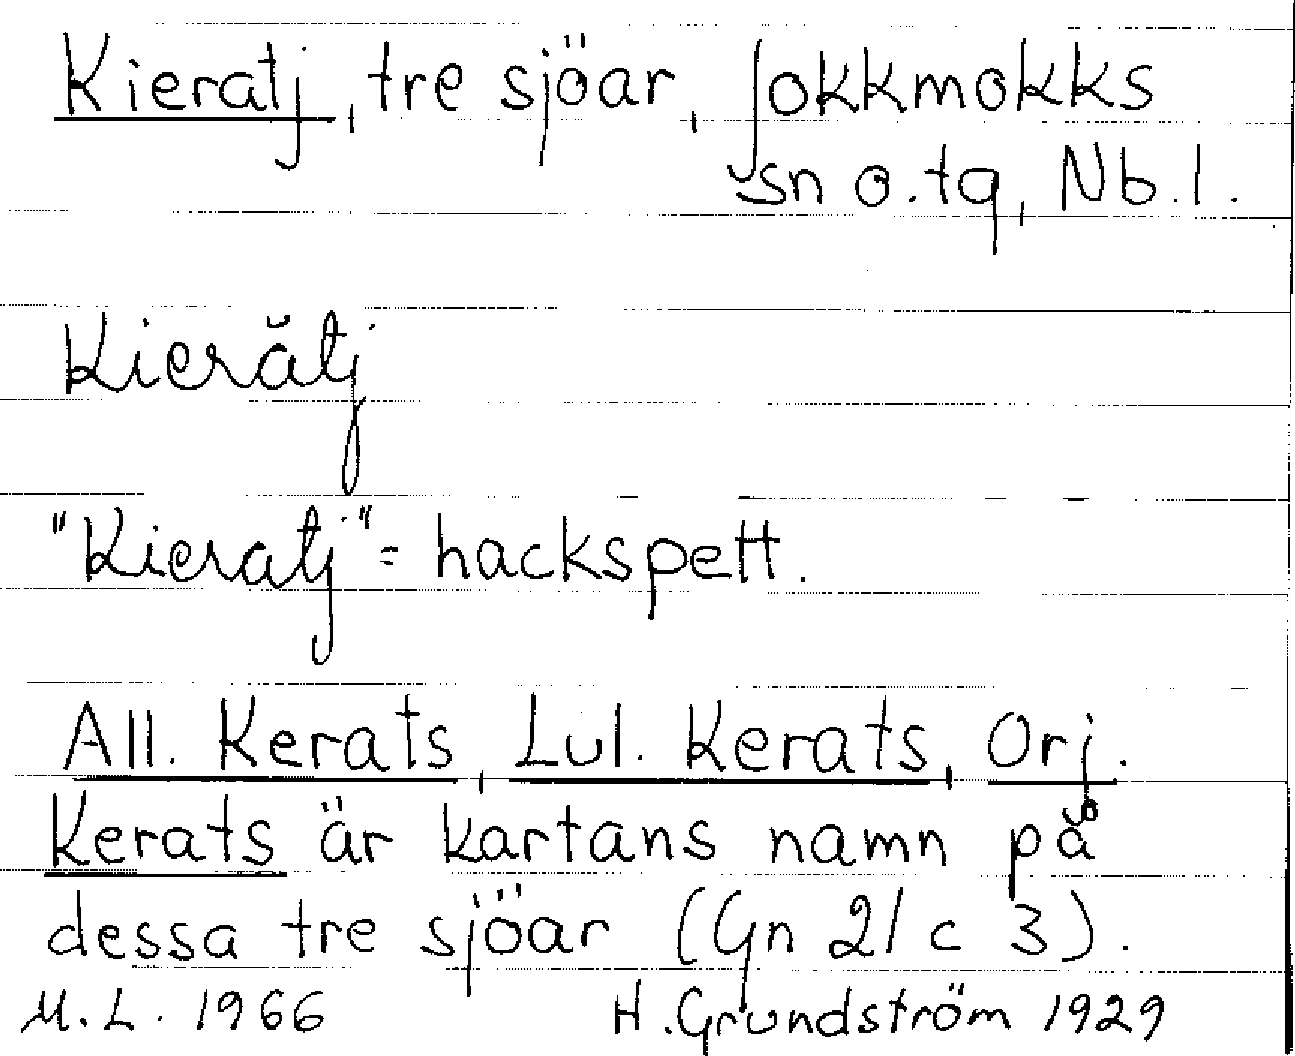 Kieratj, tre sjöar, Jokkmokks
sn o. tg, Nb. l.
Kierătj
"Kieratj" = hackspett.
All. Kerats, Lul. Kerats, Orj.
Kerats är kartans namn på
dessa tre sjöar (Gn 21 c 3).
M. L. 1966 H. Grundström 1929